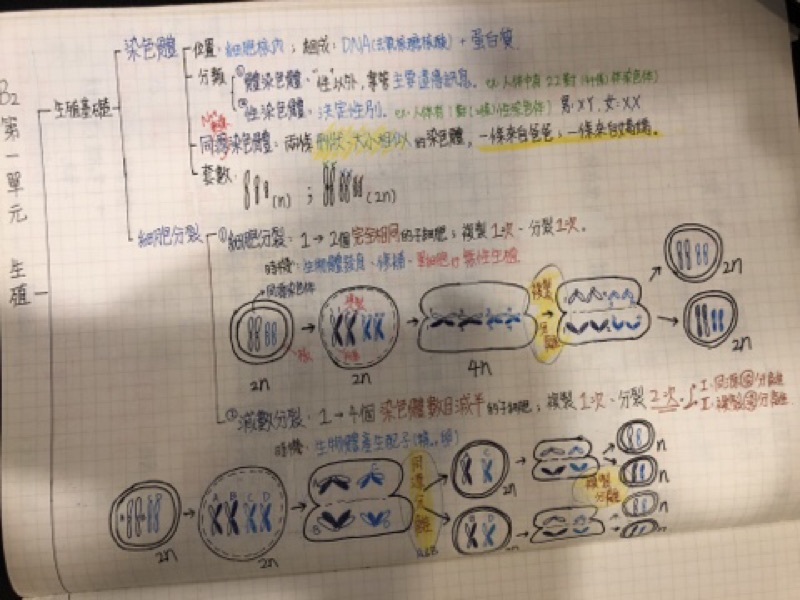 B2 第一單元 生殖
生殖基礎
染色體
位置：細胞核內；組成：DNA(去氧核糖核酸) + 蛋白質
分類
①體染色體："性"以外，掌管主要遺傳訊息。ex.人体中有22對(44條)体染色体
②性染色體：決定性別。ex.人体有1對(2條)性染色体 男：XY，女：XX
同源染色體：兩條形狀、大小相似的染色體，一條來自爸爸，一條來自媽媽。
套數：
(n) ； (2n)
細胞分裂
①細胞分裂：1→2個完全相同的子細胞；複製1次、分裂1次。
時機：生物體發育、修補、單細胞行無性生殖
同源染色体
複製
複製分離
2n
2n
4n
2n
2n
②減數分裂：1→4個染色體數目減半的子細胞；複製1次、分裂2次。
I：同源分離
II：複製分離
時機：生物體產生配子(精、卵)
A B C D
A C
B D
同源分離
A C
B D
複製分離
2n
2n
2n
n
n
n